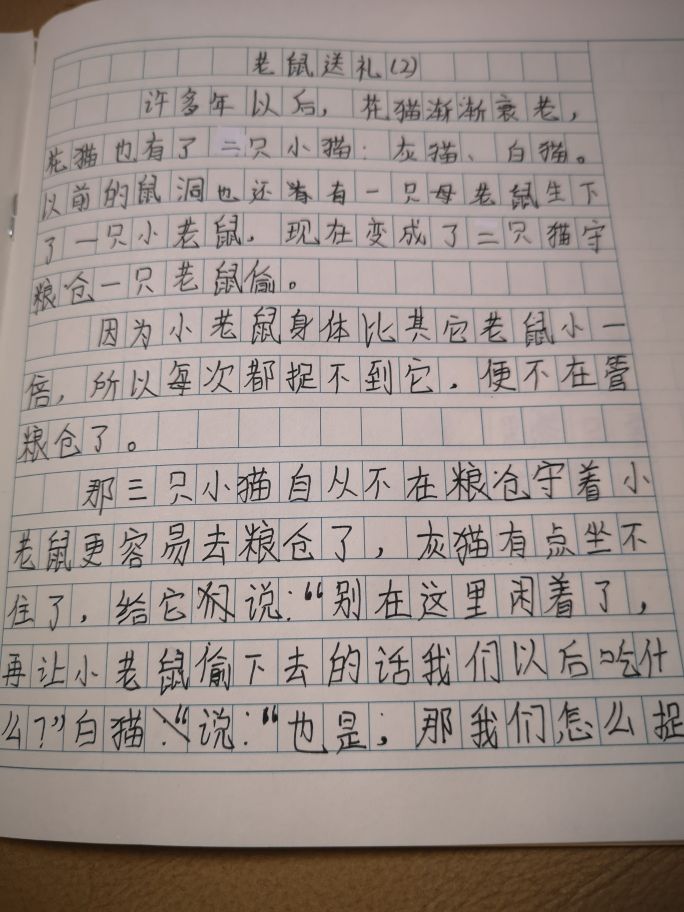 老鼠送礼(2)
许多年以后，花猫渐渐衰老，
花猫也有了二只小猫：灰猫、白猫。
以前的鼠洞也还有一只母老鼠生下
了一只小老鼠，现在变成了二只猫守
粮仓一只老鼠偷。
因为小老鼠身体比其它老鼠小一
倍，所以每次都捉不到它，便不在管
粮仓了。
那三只小猫自从不在粮仓守着小
老鼠更容易去粮仓了，灰猫有点坐不
住了，给它们说：“别在这里闲着了，
再让小老鼠偷下去的话我们以后吃什
么？”白猫说：“也是，那我们怎么捉